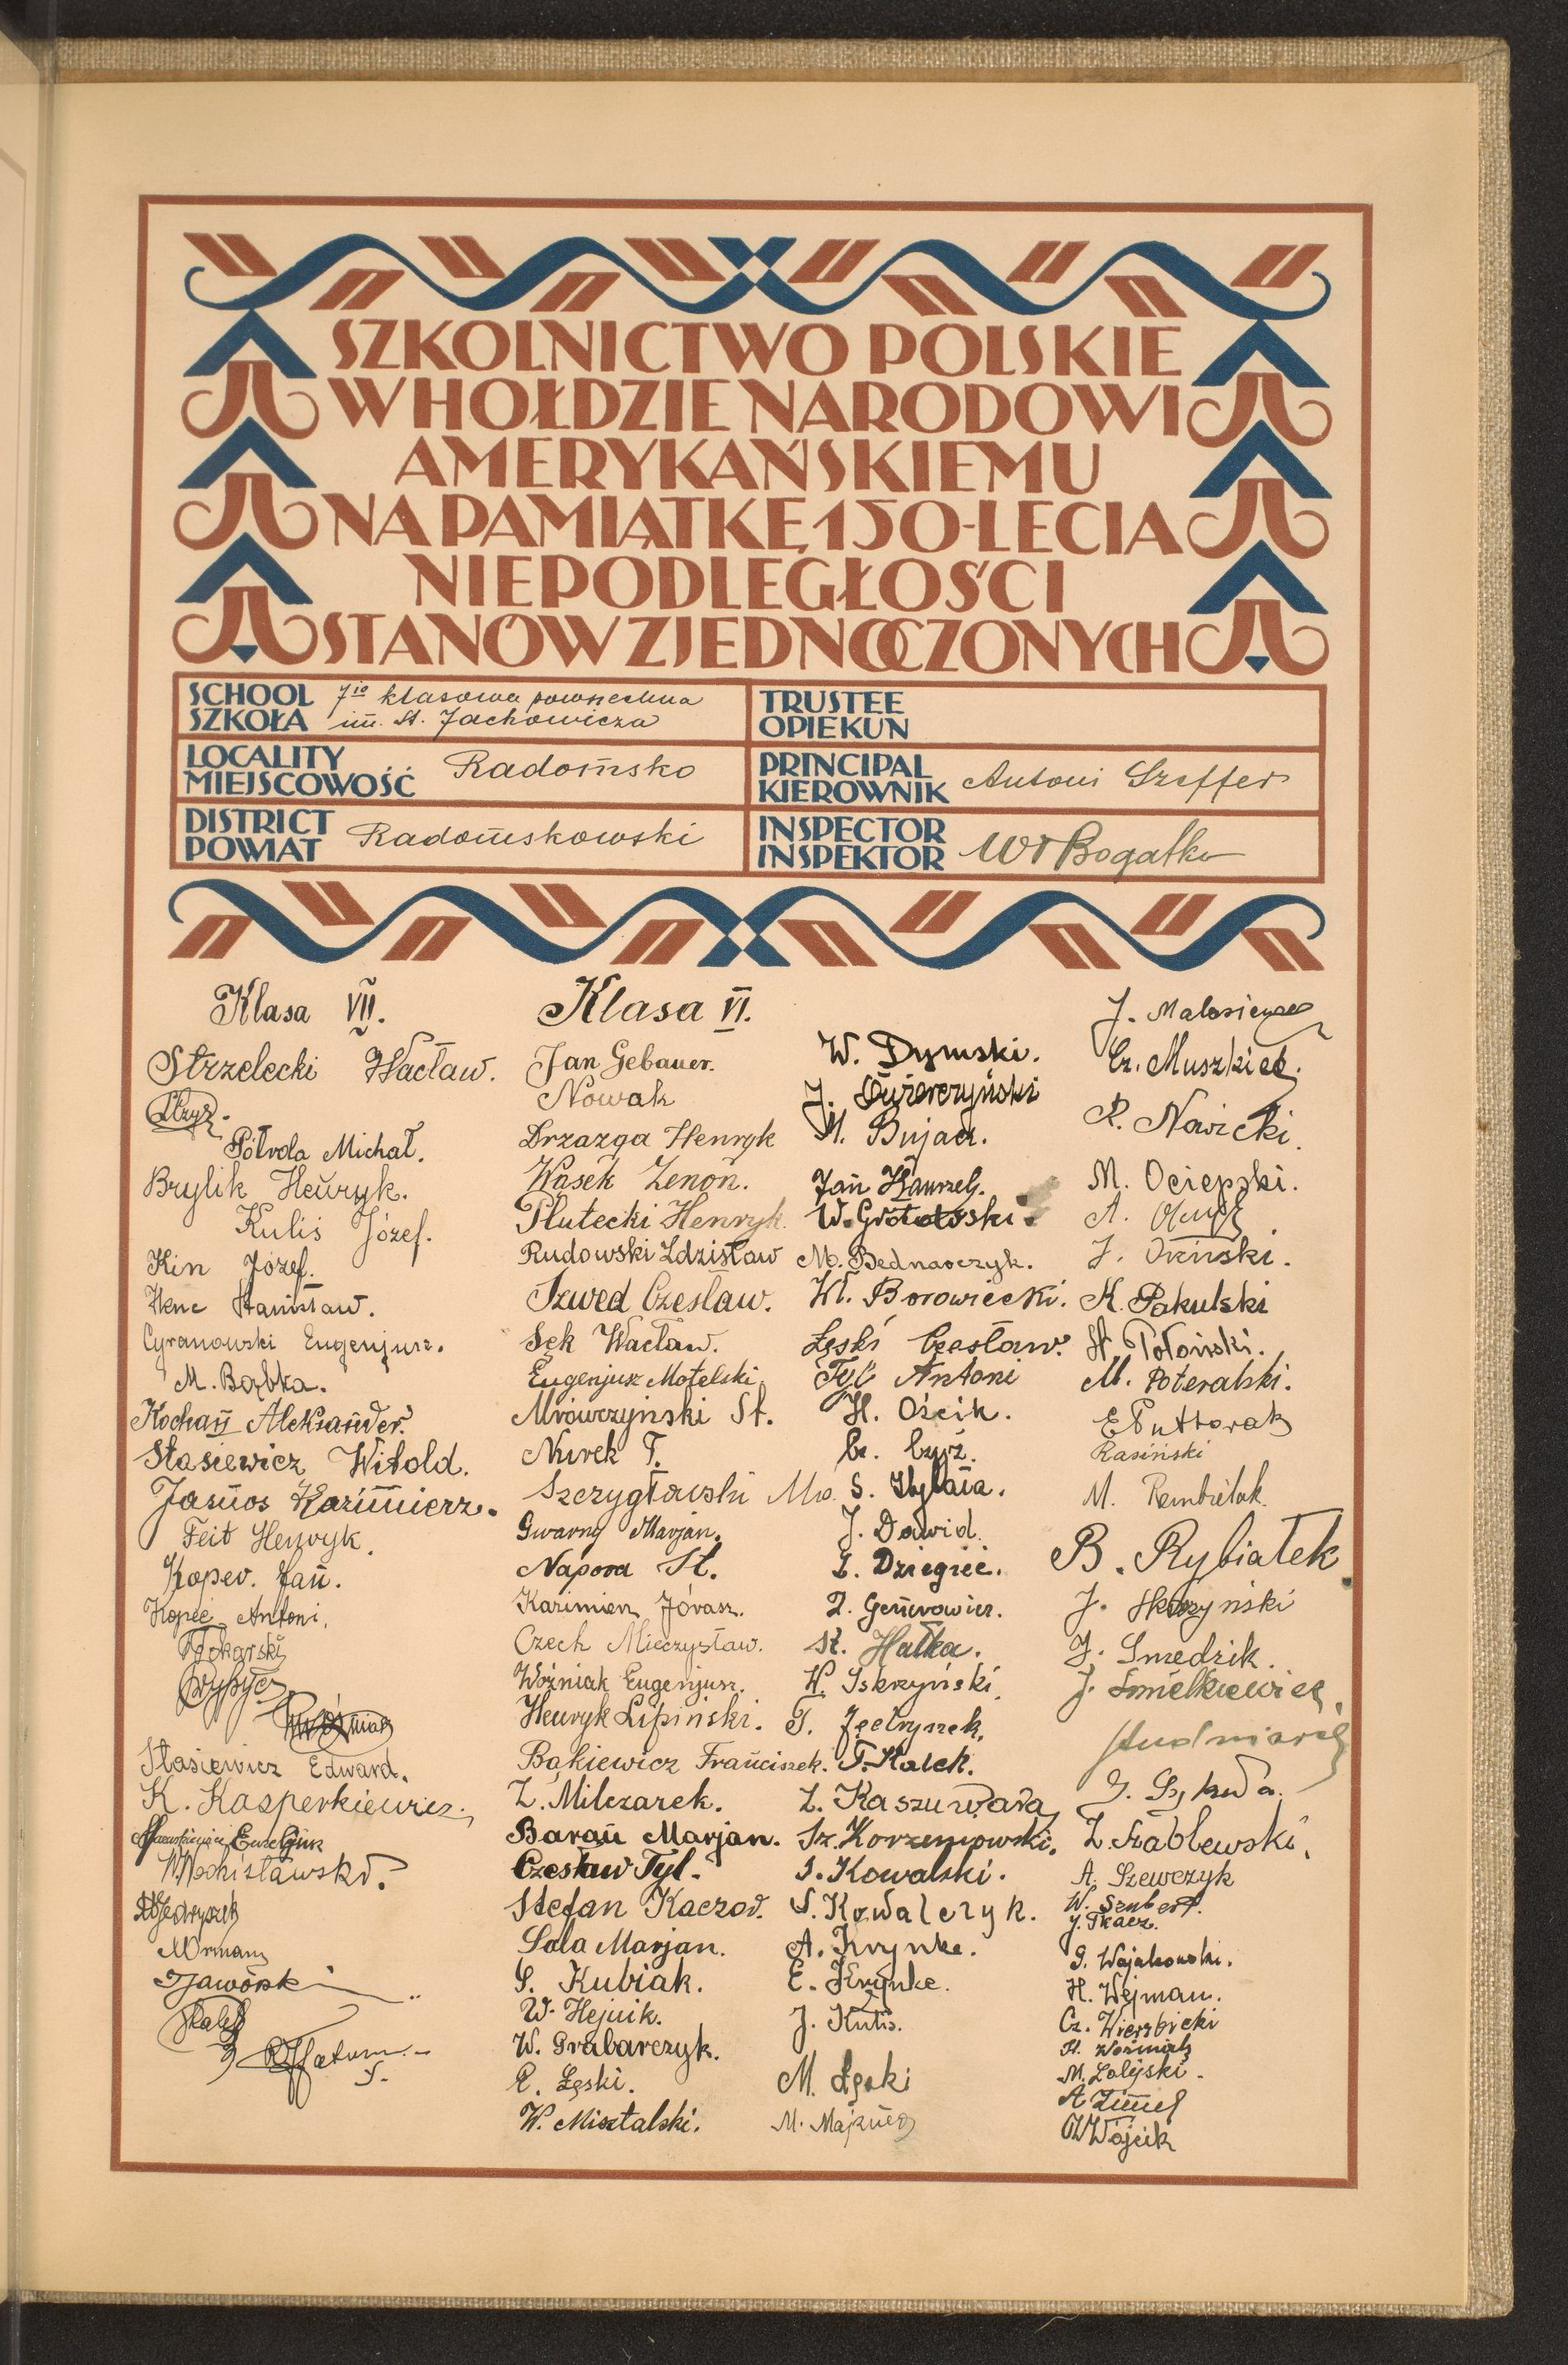 SZKOLNICTWO POLSKIE
W HOŁDZIE NARODOWI
AMERYKAŃSKIEMU
NA PAMIĄTKĘ 150-LECIA
NIEPODLEGŁOŚCI
STANÓW ZJEDNOCZONYCH
SCHOOL
SZKOŁA
7io klasowa powszechna
im. St. Jachowicza
TRUSTEE
OPIEKUN
LOCALITY
MIEJSCOWOŚĆ
Radomsko
PRINCIPAL
KIEROWNIK
Antoni Szeffer
DISTRICT
POWIAT
Radomskowski
INSPECTOR
INSPEKTOR
Wł Bogatko
Klasa VII.
Strzelecki Wacław.
Michał.
Brylik Henryk.
Kulis Józef.
Kin Józef.
Stanisław.
Cyranowski Eugenjusz.
M. Bąbka.
Kochań Aleksander.
Stasiewicz Witold.
Jasnos Kazimierz.
Feit Henryk.
Kopeć. Jan.
Kopeć Antoni.
Tokarski
Woźniak
Stasiewicz Edward.
K. Kasperkiewicz.
Jędryszek
Jaworski
Klasa VI.
Jan Gebauer.
Nowak
Drzazga Henryk
Wąsek Zenon.
Plutecki Henryk.
Rudowski Zdzisław
Szwed Czesław.
Sęk Wacław.
Eugenjusz Motelski.
Mrówczyński St.
Nurek T.
Szczygłowski
Gwarny Marjan.
Napora St.
Kazimierz Jóvasz.
Czech Mieczysław.
Woźniak Eugenjusz.
Henryk Lipiński.
Bąkiewicz Franciszek.
Z. Milczarek.
Baran Marjan.
Czesław Tyl.
Stefan Kaczor.
Sala Marjan.
S. Kubiak.
W. Hejnik.
W. Grabarczyk.
R. Łęski.
W. Misztalski.
W. Dymski.
J. Świerczyński
M. Bujacz.
Jan Hawrzel.
W. Grotowski
M. Bednarczyk.
Wł. Borowiecki.
Łęski Czesław.
Tyl Antoni
H. Ościk.
Cz. Czyż.
J. Dawid.
Z. Dziegieć.
Z. Generowicz.
St. Hałka.
W. Iskrzyński.
T. Jędryszek.
T. Kalek.
Z. Kaszuwara
Sz. Korzeniowski.
J. Kowalski.
S. Kowalczyk.
A. Krynke.
E. Krynke.
J. Kulis.
M. Łęski
M. Majzner
J. Malasiewicz
Cz. Muszkiet.
R. Nowicki.
M. Ociepski.
J. Oziński.
K. Pakulski
St. Połoński.
M. Poteralski.
E Puttorak
Rasiński
M. Rembielak.
B. Rybiałek
J. Skoczyński
J. Smedzik.
J. Śmiełkiewicz.
Studniarek
Z. Szablewski.
A. Szewczyk
W. Szubert.
J. Tkacz.
S. Wajakowski.
H. Wejman.
Cz. Wierzbicki
H. Woźniak
M. Zalejski.
A Zimel
W Wójcik